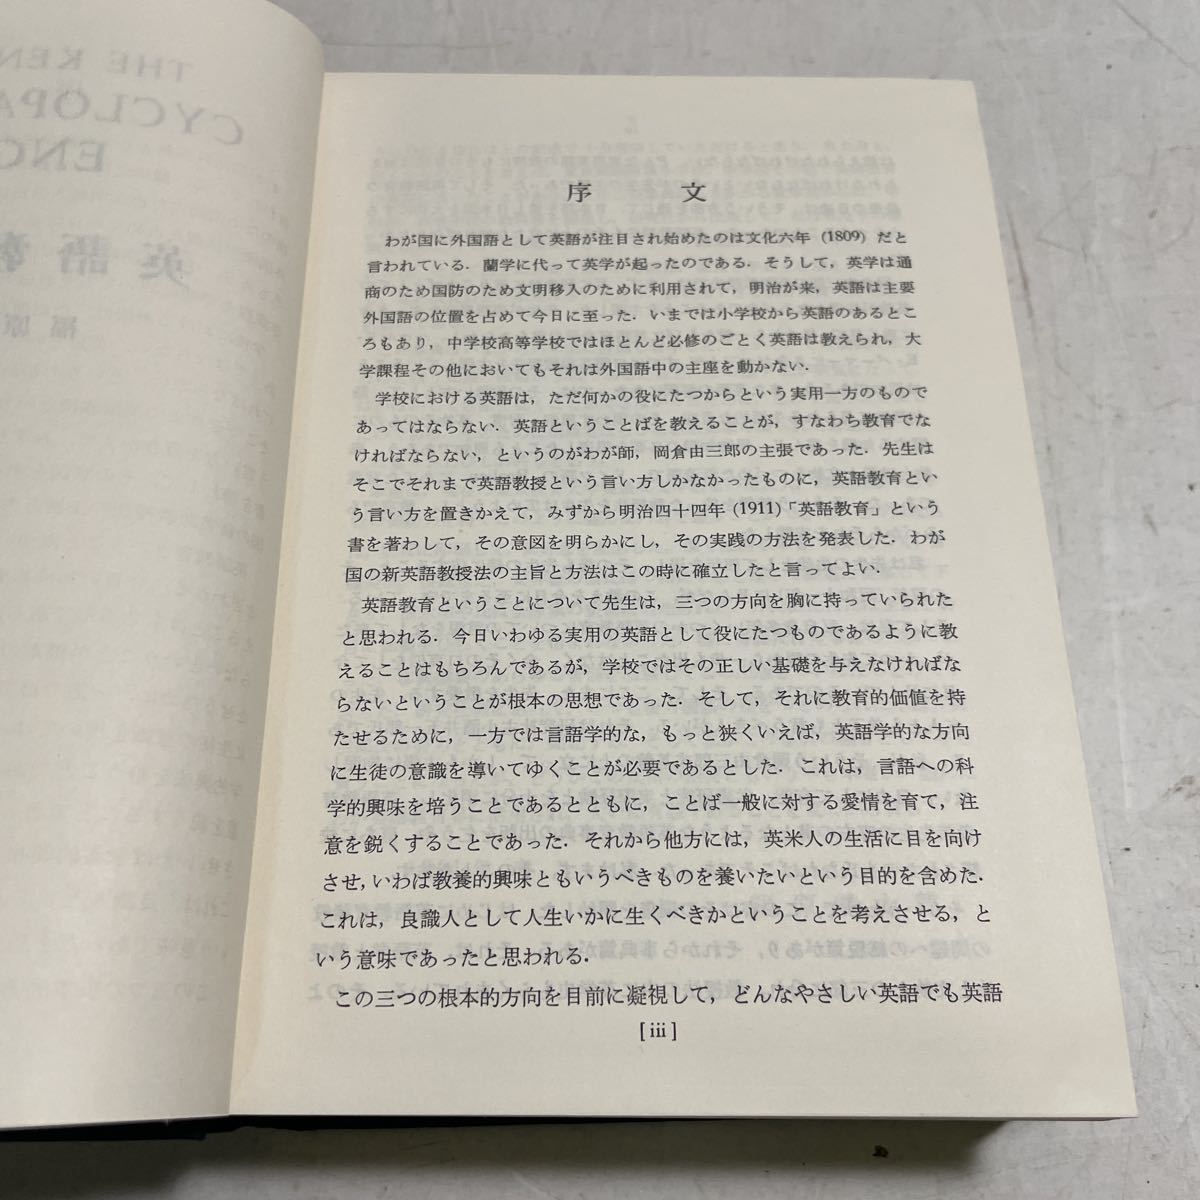 THE KEN
CYCLOPA
ENG
英語教
福原
序文
わが国に外国語として英語が注目され始めたのは文化六年 (1809) だと
言われている．蘭学に代って英学が起ったのである．そうして，英学は通
商のため国防のため文明移入のために利用されて，明治が来，英語は主要
外国語の位置を占めて今日に至った．いまでは小学校から英語のあるとこ
ろもあり，中学校高等学校ではほとんど必修のごとく英語は教えられ，大
学課程その他においてもそれは外国語中の主座を動かない．
学校における英語は，ただ何かの役にたつからという実用一方のもので
あってはならない．英語ということばを教えることが，すなわち教育でな
ければならない，というのがわが師，岡倉由三郎の主張であった．先生は
そこでそれまで英語教授という言い方しかなかったものに，英語教育とい
う言い方を置きかえて，みずから明治四十四年 (1911)「英語教育」という
書を著わして，その意図を明らかにし，その実践の方法を発表した．わが
国の新英語教授法の主旨と方法はこの時に確立したと言ってよい．
英語教育ということについて先生は，三つの方向を胸に持っていられた
と思われる．今日いわゆる実用の英語として役にたつものであるように教
えることはもちろんであるが，学校ではその正しい基礎を与えなければな
らないということが根本の思想であった．そして，それに教育的価値を持
たせるために，一方では言語学的な，もっと狭くいえば，英語学的な方向
に生徒の意識を導いてゆくことが必要であるとした．これは，言語への科
学的興味を培うことであるとともに，ことば一般に対する愛情を育て，注
意を鋭くすることであった．それから他方には，英米人の生活に目を向け
させ，いわば教養的興味ともいうべきものを養いたいという目的を含めた．
これは，良識人として人生いかに生くべきかということを考えさせる，と
いう意味であったと思われる．
この三つの根本的方向を目前に凝視して，どんなやさしい英語でも英語
[ iii ]